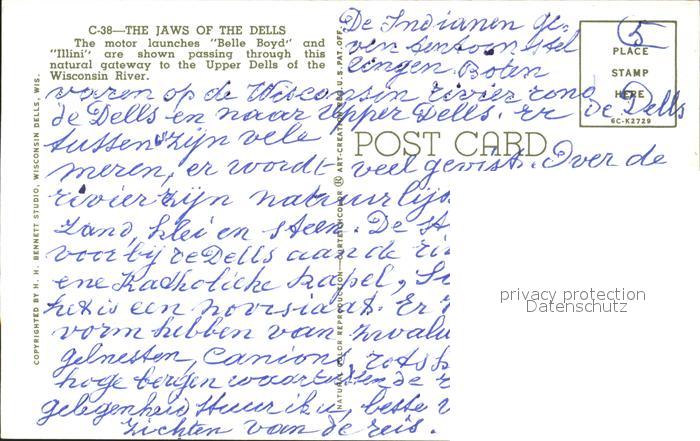 C-38—THE JAWS OF THE DELLS
The motor launches "Belle Boyd" and
"Illini" are shown passing through this
natural gateway to the Upper Dells of the
Wisconsin River.
COPYRIGHTED BY H. H. BENNETT STUDIO, WISCONSIN DELLS, WIS.
NATURAL COLOR REPRODUCTION—CURTEICHCOLOR ® ART-CREATION REG. U.S. PAT. OFF.
POST CARD
PLACE
STAMP
HERE
6C-K2729
5
De Indianen ge-
ven
Boten
varen op de Wisconsin rivier rond de Dells
de Dells en naar Upper Dells. Er
tussen zijn vele
meren, er wordt veel gevist. Over de
rivier zijn natuurlijs
zand, klei en steen. De st
voorbij de Dells aan de ri
ene Katholieke kapel,
het is een noviciaat. Er
vorm hebben van zwalu
gelnesten, Canions, rots
hoge bergen en de
gelegenheid stuur ik u, beste
zichten van de reis.
privacy protection
Datenschutz